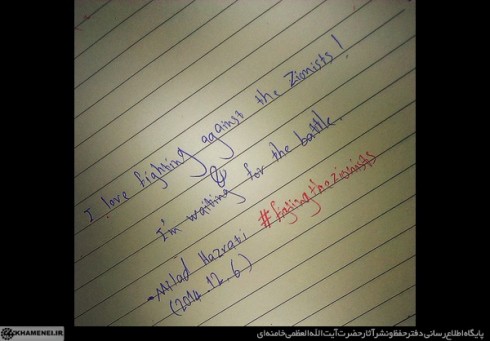 I love fighting against the Zionists!
&
I'm waiting for the battle.
#fightingthezionists
-Milad Hazrati
(2014.12.6)
KHAMENEI.IR
پایگاه اطلاع‌رسانی دفتر حفظ و نشر آثار حضرت آیت‌الله‌العظمی خامنه‌ای